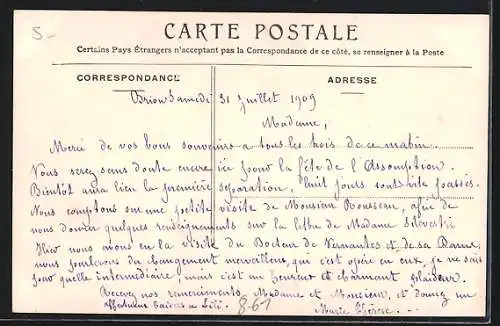 5-
CARTE POSTALE
Certains Pays Étrangers n'acceptant pas la Correspondance de ce côté, se renseigner à la Poste
CORRESPONDANCE
ADRESSE
Brion Samedi 31 Juillet 1909
Madame,
Merci de vos bons souvenirs a tous les trois de ce matin.
Vous serez sans doute encore ici pour la fête de l'Assomption.
Bientôt aura lieu la première séparation, huit jours sont vite passés.
Nous comptons sur une petite visite de Monsieur Rousseau, afin de
nous donner quelques renseignements sur la lettre de Madame Silvestri
Hier nous avons eu la visite du Docteur de Vernantes et de sa Dame,
nous parlions du changement merveilleux, qui s'est opéré en eux, je ne sais
pour quelle intermédiaire, mais c'est un heureux et charmant plaideur.
Recevez nos remerciements Madame et Monsieur, et donnez un
affectueux baiser a
8-61
Marie Thérèse